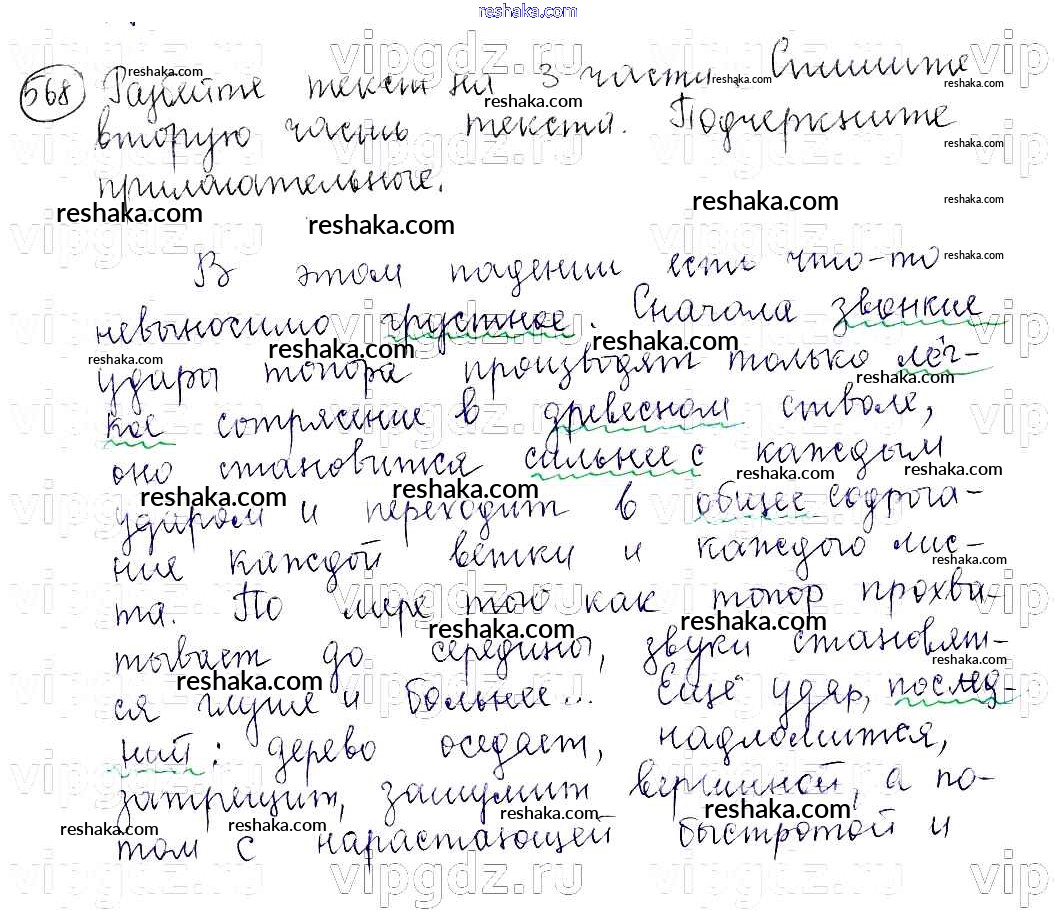 reshaka.com
568 Разбейте текст на 3 части. Спишите
вторую часть текста. Подчеркните
прилагательные.
В этом падении есть что-то
невыносимо грустное. Сначала звонкие
удары топора производят только лёг-
кое сотрясение в древесном стволе,
оно становится сильнее с каждым
ударом и переходит в общее содрога-
ние каждой ветки и каждого лис-
та. По мере того как топор прохва-
тывает до середины, звуки становят-
ся глуше и больнее... Ещё удар, послед-
ний: дерево оседает, надломится,
затрещит, зашумит вершиной, а по-
том с нарастающей быстротой и